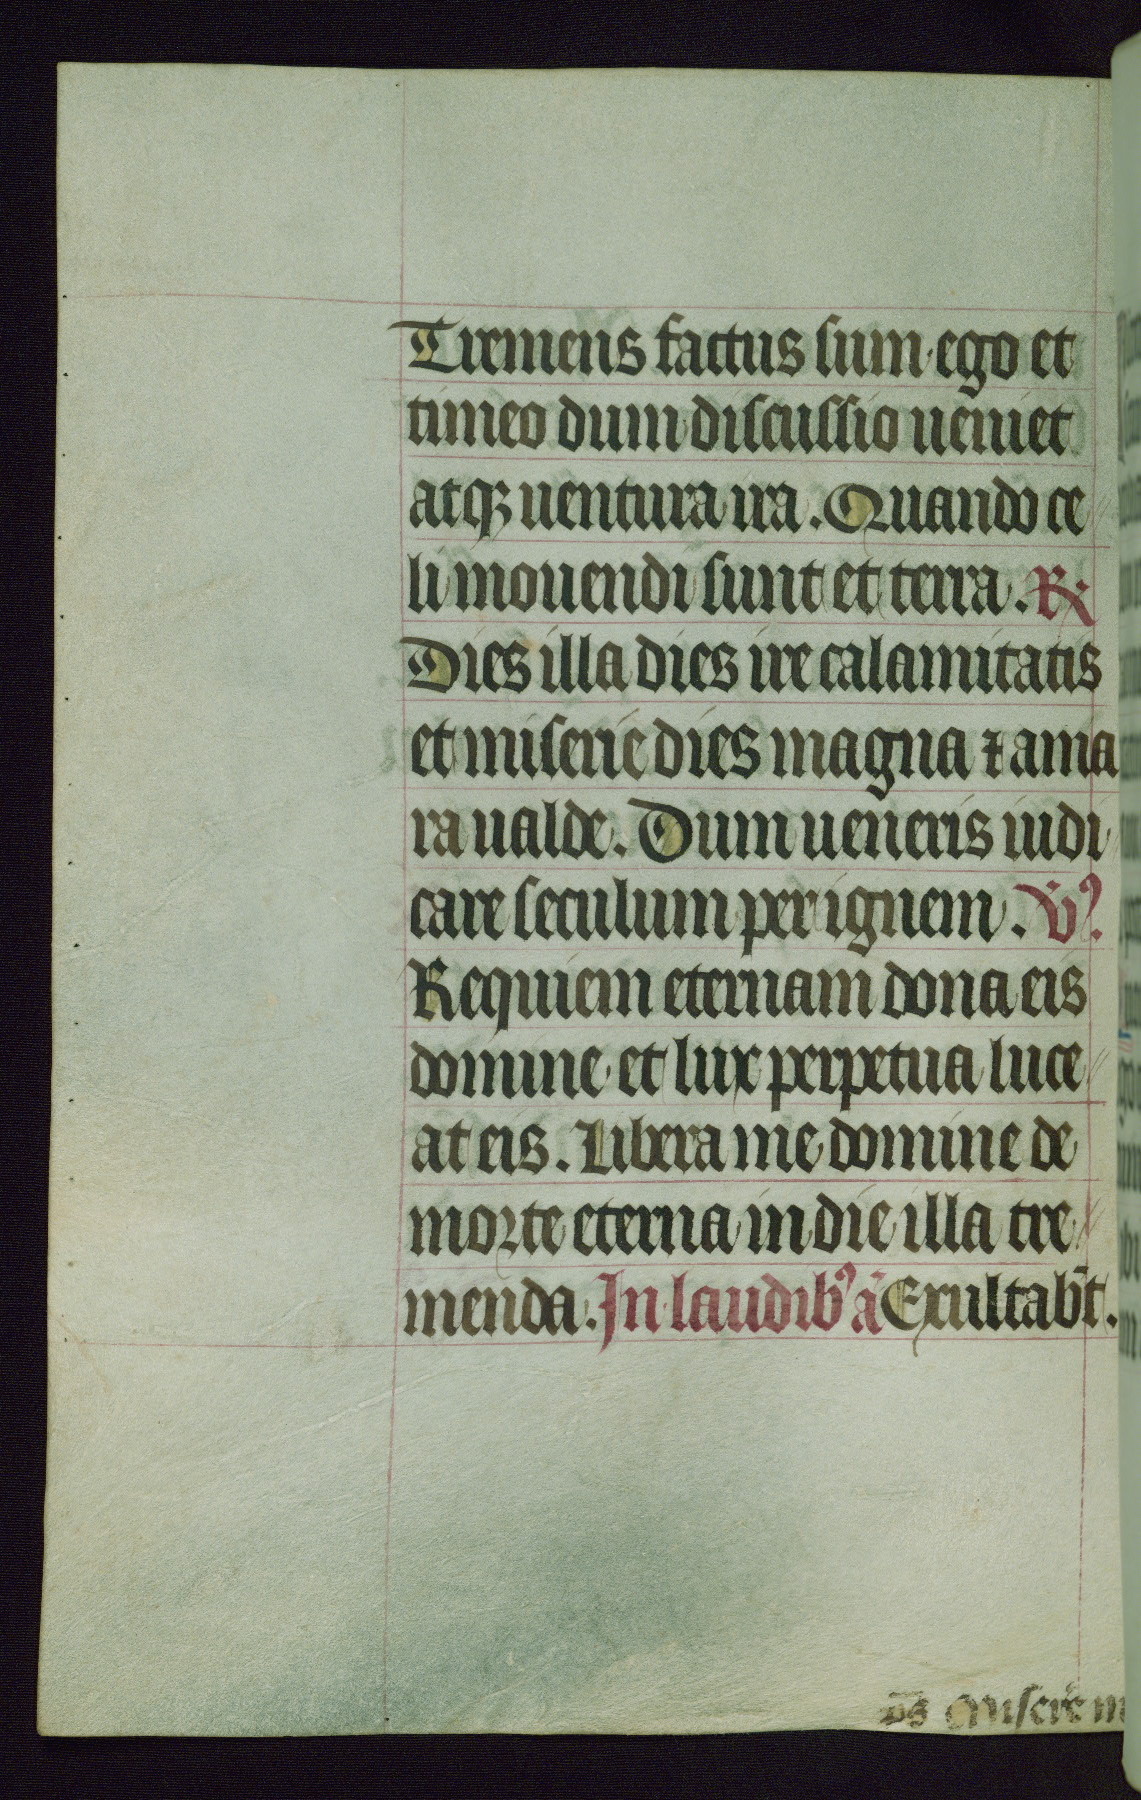 Tremens factus sum ego et
timeo dum discussio ueniet
atqꝫ uentura ira. Quando ce
li mouendi sunt et terra. ℞
Dies illa dies ire calamitatis
et miserie dies magna ⁊ ama
ra ualde. Dum ueneris iudi
care seculum per ignem. V̄ꝰ.
Requiem eternam dona eis
domine et lux perpetua luce
at eis. Libera me domine de
morte eterna in die illa tre
menda. In laudibꝰ añ Exultab̄t.
ds̄ Misere m